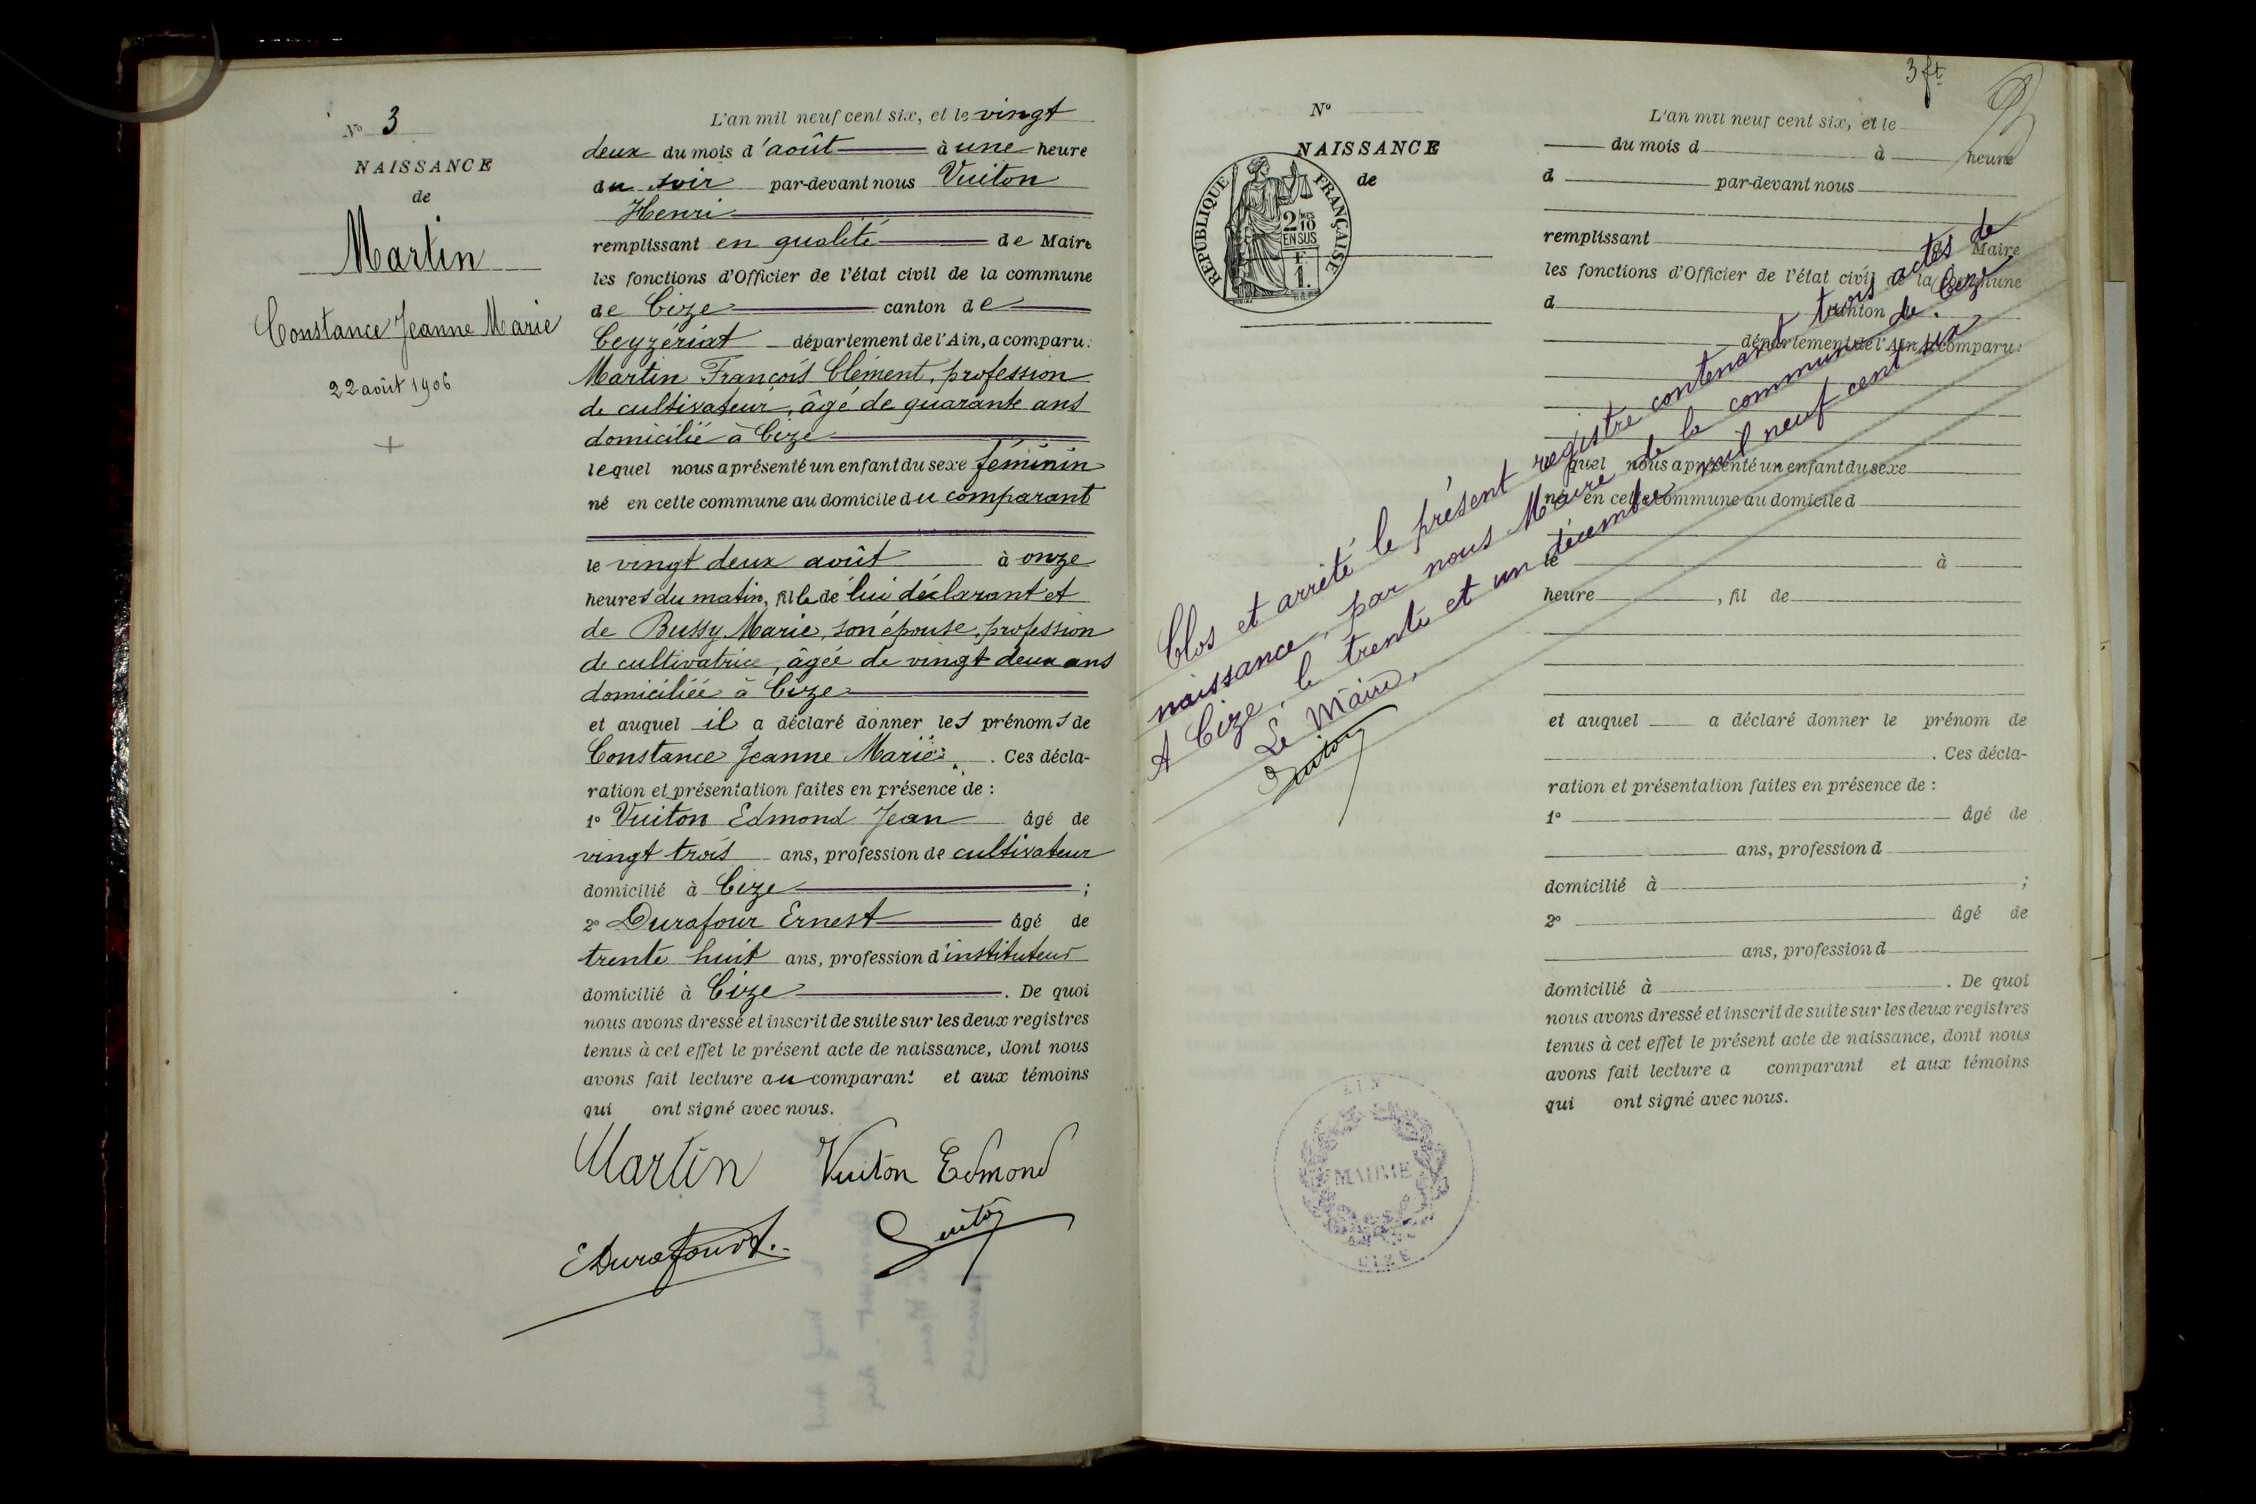 N° 3
NAISSANCE
de
Martin
Constance Jeanne Marie
22 août 1906
+
L'an mil neuf cent six, et le vingt
deux du mois d'août à une heure
du soir par-devant nous Vuiton
Henri
remplissant en qualité de Maire
les fonctions d'Officier de l'état civil de la commune
de Cize canton de
Ceyzériat département de l'Ain, a comparu:
Martin François Clément, profession
de cultivateur, âgé de quarante ans
domicilié à Cize
lequel nous a présenté un enfant du sexe féminin
né en cette commune au domicile du comparant
le vingt deux août à onze
heures du matin, fille de lui déclarant et
de Bussy Marie, son épouse, profession
de cultivatrice, âgée de vingt deux ans
domiciliée à Cize
et auquel il a déclaré donner les prénoms de
Constance Jeanne Marie. Ces décla-
ration et présentation faites en présence de :
1° Vuiton Edmond Jean âgé de
vingt trois ans, profession de cultivateur
domicilié à Cize ;
2° Durafour Ernest âgé de
trente huit ans, profession d'instituteur
domicilié à Cize. De quoi
nous avons dressé et inscrit de suite sur les deux registres
tenus à cet effet le présent acte de naissance, dont nous
avons fait lecture au comparant et aux témoins
qui ont signé avec nous.
Martin Vuiton Edmond
EDurafour Vuiton
3 ft
N°
NAISSANCE
de
RÉPUBLIQUE FRANÇAISE
2/10
EN SUS
F.
1.
L'an mil neuf cent six, et le
du mois d à heure
d par-devant nous
remplissant Maire
les fonctions d'Officier de l'état civil de la commune
d canton
département de l'Ain, a comparu:
quel nous a présenté un enfant du sexe
né en cette commune au domicile d
le à
heure , fil de
et auquel a déclaré donner le prénom de
. Ces décla-
ration et présentation faites en présence de :
1° âgé de
ans, profession d
domicilié à ;
2° âgé de
ans, profession d
domicilié à . De quoi
nous avons dressé et inscrit de suite sur les deux registres
tenus à cet effet le présent acte de naissance, dont nous
avons fait lecture a comparant et aux témoins
qui ont signé avec nous.
Clos et arrêté le présent registre contenant trois actes de
naissance, par nous Maire de la commune de Cize
A Cize, le trente et un décembre mil neuf cent six
Le Maire,
Vuiton
AIN
MAIRIE
CIZE